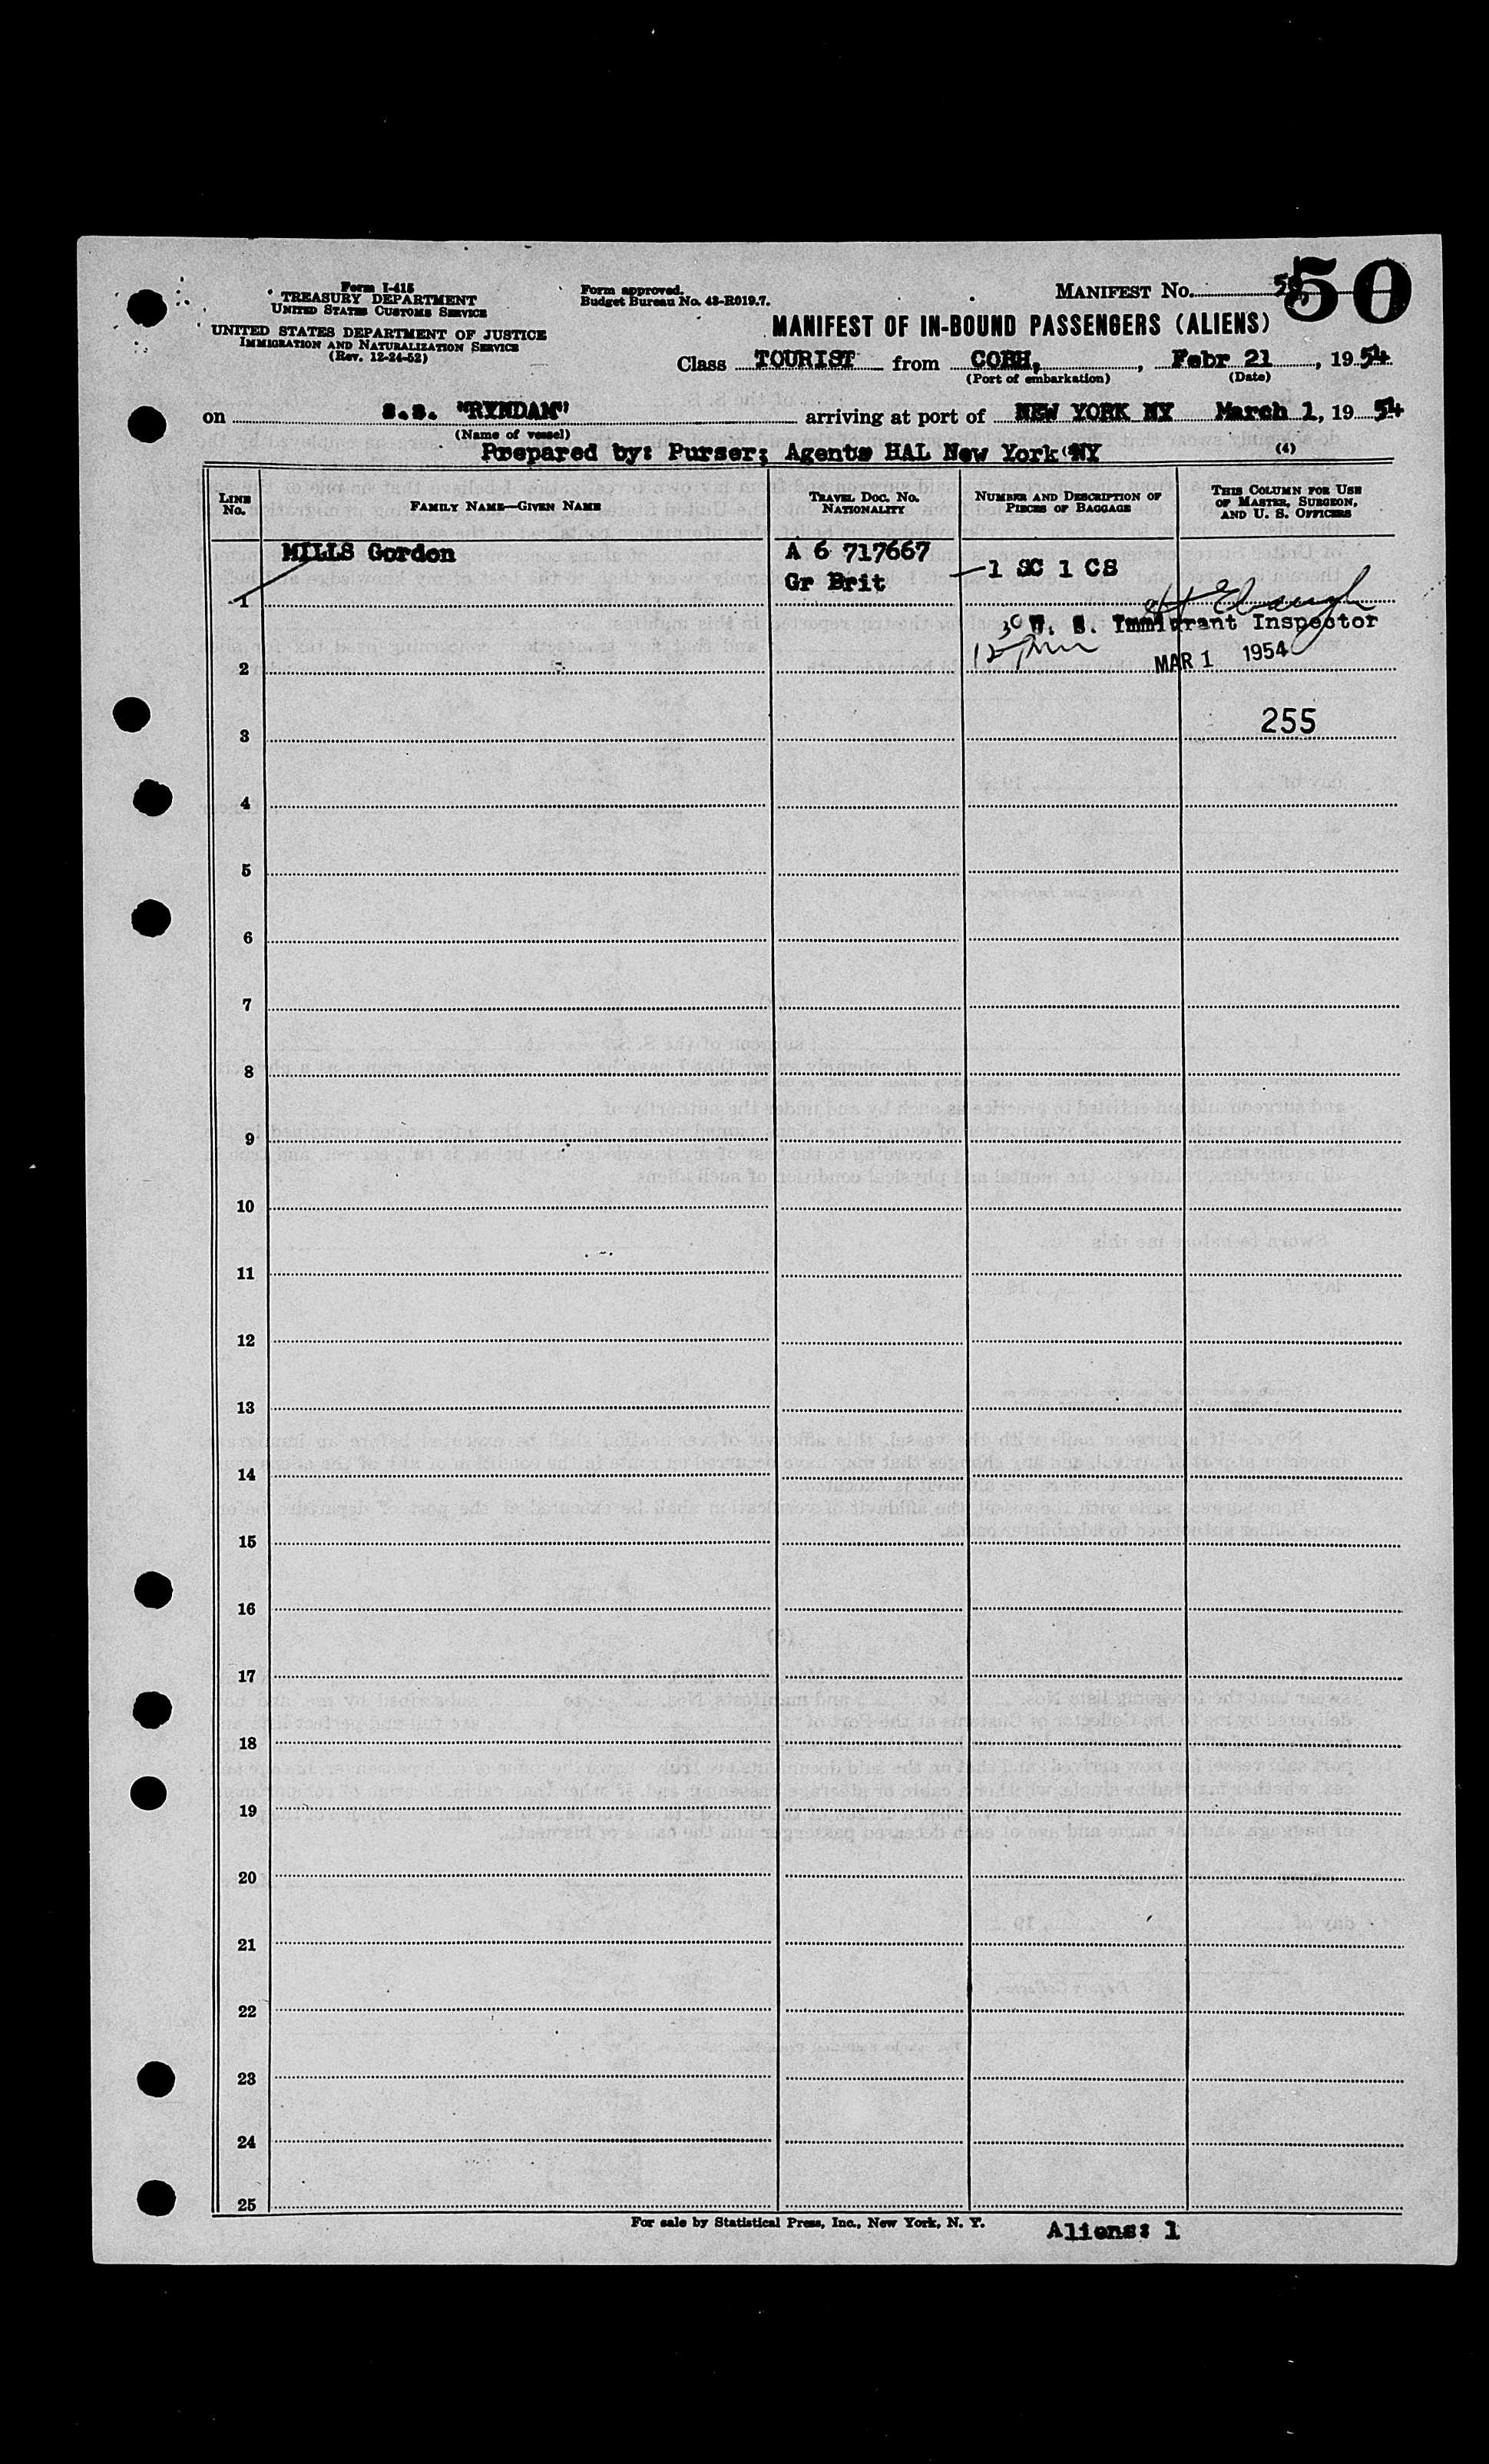 Form I-415
TREASURY DEPARTMENT
UNITED STATES CUSTOMS SERVICE
UNITED STATES DEPARTMENT OF JUSTICE
IMMIGRATION AND NATURALIZATION SERVICE
(Rev. 12-24-52)
Form approved.
Budget Bureau No. 43-R019.7.
MANIFEST NO.
50
MANIFEST OF IN-BOUND PASSENGERS (ALIENS)
Class TOURIST from COBH, , Febr 21, 1954
(Port of embarkation) (Date)
on S.S. "RYNDAM" arriving at port of NEW YORK NY March 1, 1954
(Name of vessel)
Prepared by: Purser; Agents HAL New York NY (4)
LINE NO. FAMILY NAME—GIVEN NAME TRAVEL DOC. NO. NATIONALITY NUMBER AND DESCRIPTION OF PIECES OF BAGGAGE THIS COLUMN FOR USE OF MASTER, SURGEON, AND U. S. OFFICERS
MILLS Gordon A 6 717667
Gr Brit 1 SC 1 CS
1
U. S. Immigrant Inspector
2 MAR 1 1954
3 255
4
5
6
7
8
9
10
11
12
13
14
15
16
17
18
19
20
21
22
23
24
25
For sale by Statistical Press, Inc., New York, N. Y.
Aliens: 1